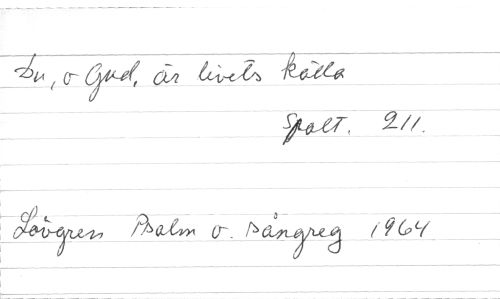 Du, o Gud, är livets källa
Spalt. 211.
Lövgren Psalm o. sångreg 1964